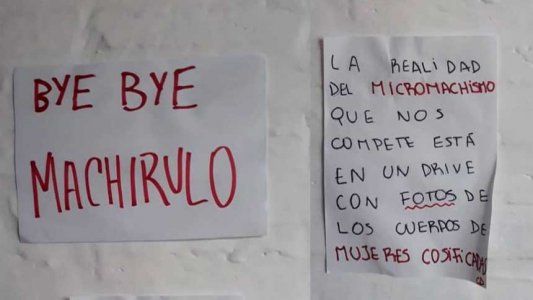 BYE BYE
MACHIRULO
LA REALIDAD
DEL MICROMACHISMO
QUE NOS
COMPETE ESTÁ
EN UN DRIVE
CON FOTOS DE
LOS CUERPOS DE
MUJERES COSIFICADAS